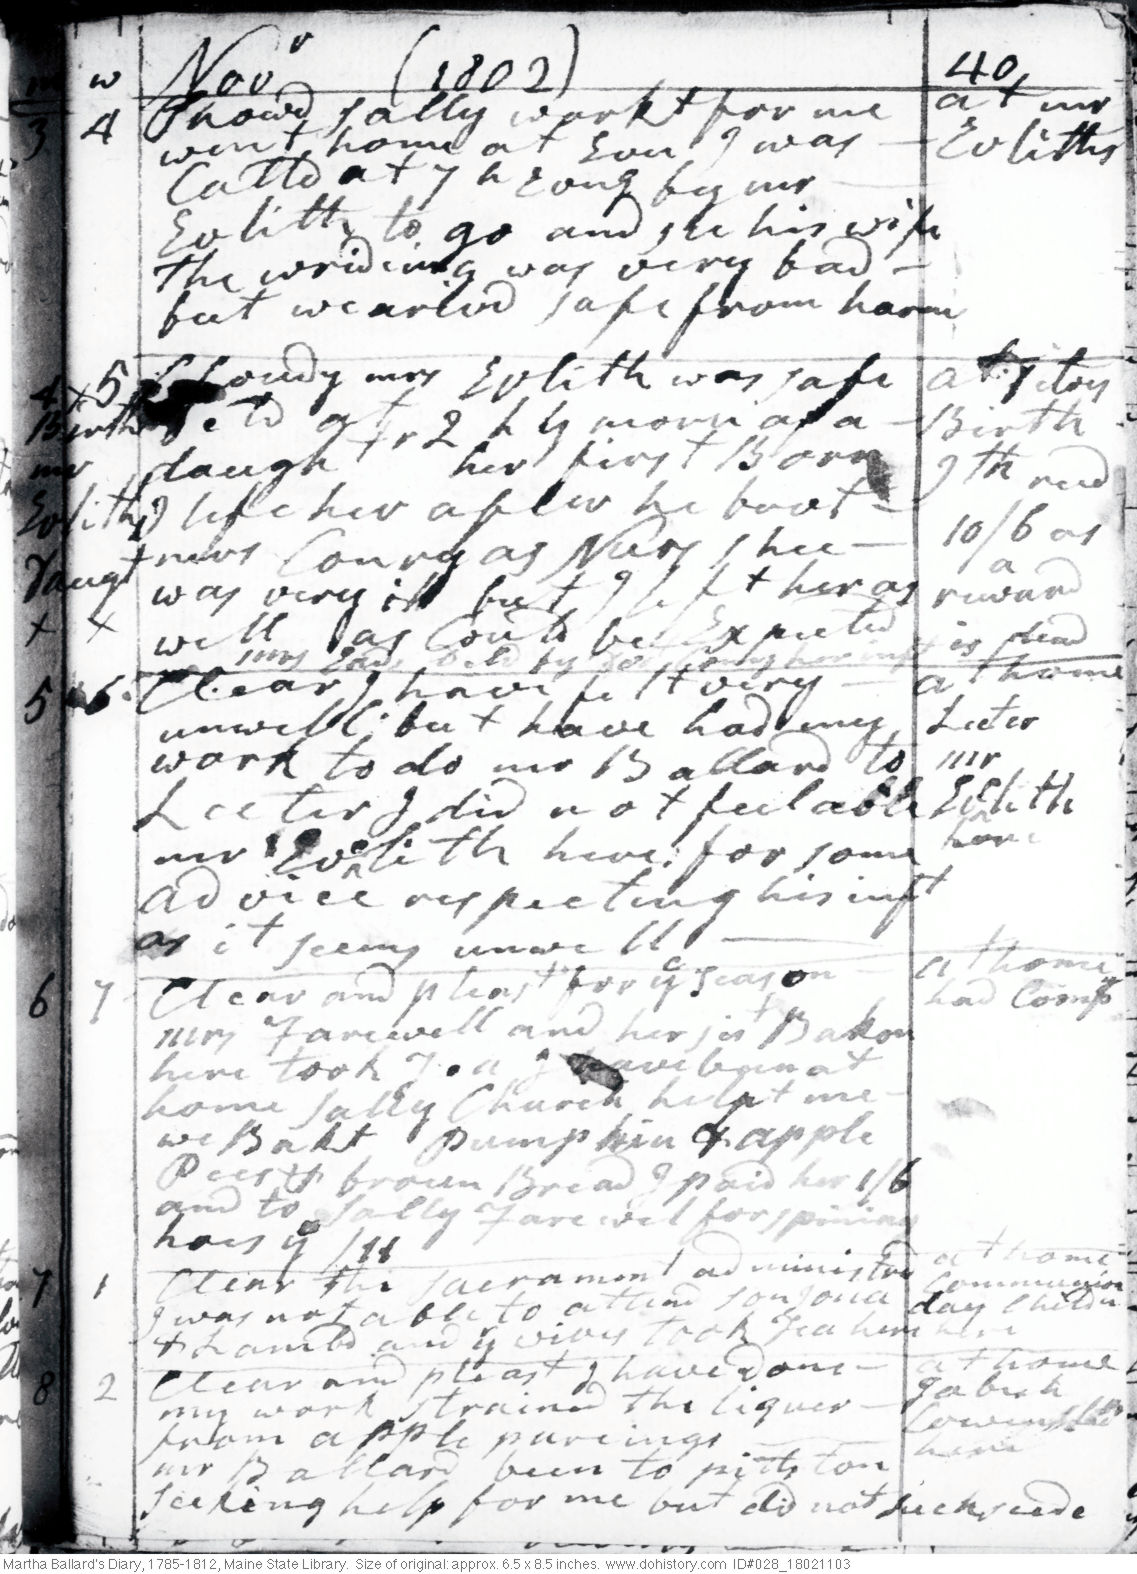 m w Novr (1802) 40
3 4 Snowd Sally workt for me at mr
went home at Evn I was Evliths
Calld at 7 h Evng by mr
Evlith to go and see his wife
the wrideing was very bad
but we arivd safe from harm
4 x 5 Cloudy mrs Evlith was safe at ditoes
Birth Deld at 2 h ys morn of a Birth
mr daught her first Born I th recd
Evliths I left her after he brot 10/6 as
Daught mrs Conry as Nurs shee a
was very ill but I left her as reward
x x well as Could be Expected is dead
mrs Deld by
5 6 Clear I have felt very at home
unwell but have had my Leeter
work to do mr Ballard to mr
Leeter I did not feel able Evelith
mr Evelith here for some here
advice respecting his inft
as it seems unwell
6 7 Clear and pleast for ye season at home
mrs Farewell and her sistr Bakon had Compy
here took T.a I have been at
home Sally Church helpt me
we Bakt Pumpkin & apple
Pies & brown Bread I paid her 1/6
and to Sally Farewel for spining
hoes yn
7 1 Clear the sacrament administred at home
I was not able to attend son Jona Communion
& Lambd and ys wives took Tea here day Childn here
8 2 Clear and pleast I have done at home
my work strained the liquer
from apple pareings here
mr Ballard been to pittston
seeking help for me but did not suckseede
Martha Ballard's Diary, 1785-1812, Maine State Library. Size of original: approx. 6.5 x 8.5 inches. www.dohistory.com ID#028_18021103